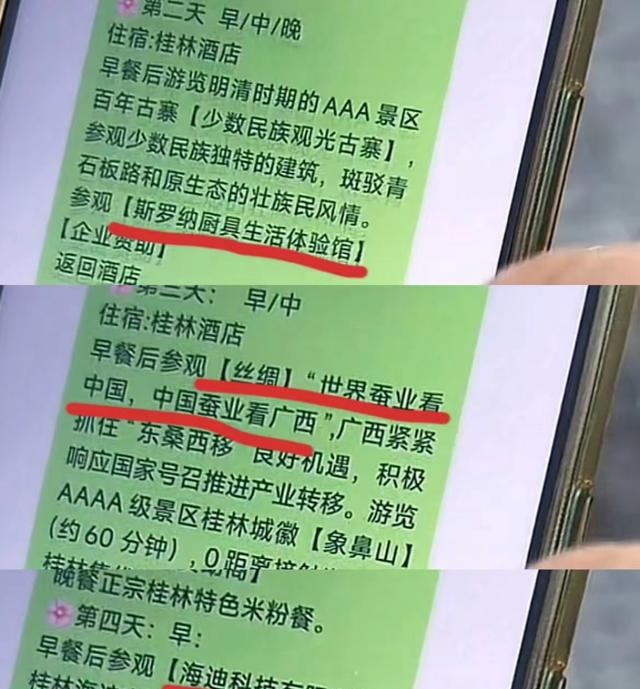 🌸第二天 早/中/晚
住宿:桂林酒店
早餐后游览明清时期的AAA景区
百年古寨【少数民族观光古寨】,
参观少数民族独特的建筑，斑驳青
石板路和原生态的壮族民风情。
参观【斯罗纳厨具生活体验馆】
【企业赞助】
返回酒店
🌸第三天： 早/中
住宿:桂林酒店
早餐后参观【丝绸】“世界蚕业看
中国，中国蚕业看广西”,广西紧紧
抓住“东桑西移”良好机遇，积极
响应国家号召推进产业转移。游览
AAAA级景区桂林城徽【象鼻山】
(约60分钟）,0距离接触
晚餐正宗桂林特色米粉餐。
🌸第四天：早:
早餐后参观【海迪科技有限